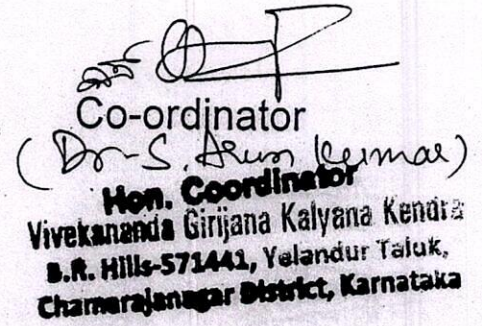 Co-ordinator
(Dr-S. Arun Kumar)
Hon. Coordinator
Vivekananda Girijana Kalyana Kendra
B.R. Hills-571441, Yelandur Taluk,
Chamarajanagar District, Karnataka